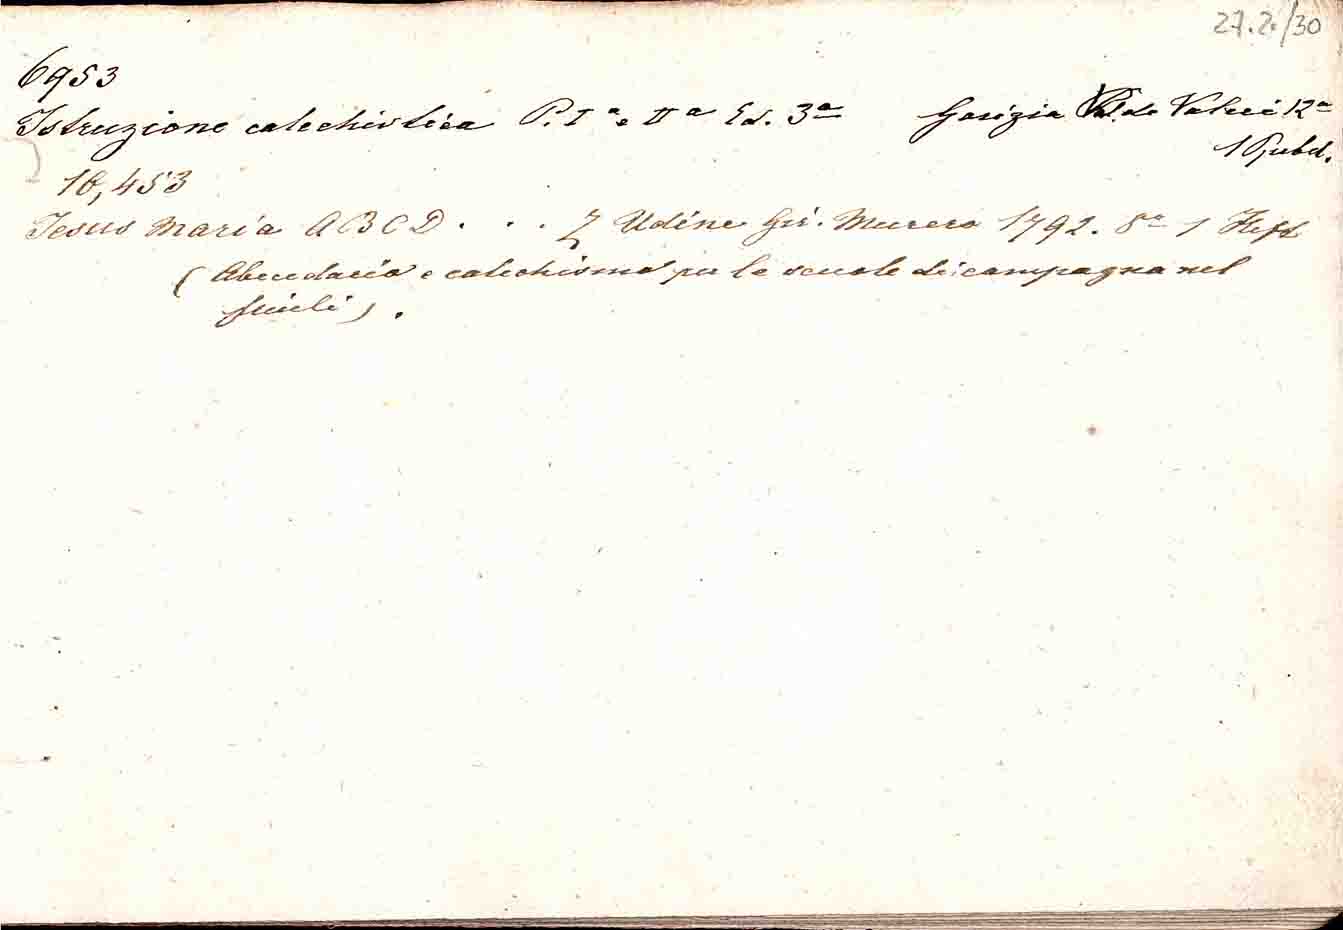 27.2./30
6953
Istruzione catechistica P. Iª e IIª Ed. 3ª Gorizia Val. de Valeri 12º
1 Hbd.
10,453
Jesus Maria A B C D . . . Z Udine Gir. Murero 1792. 8º 1 Heft
(Abecedario e catechismo per le scuole di campagna nel
friuli).